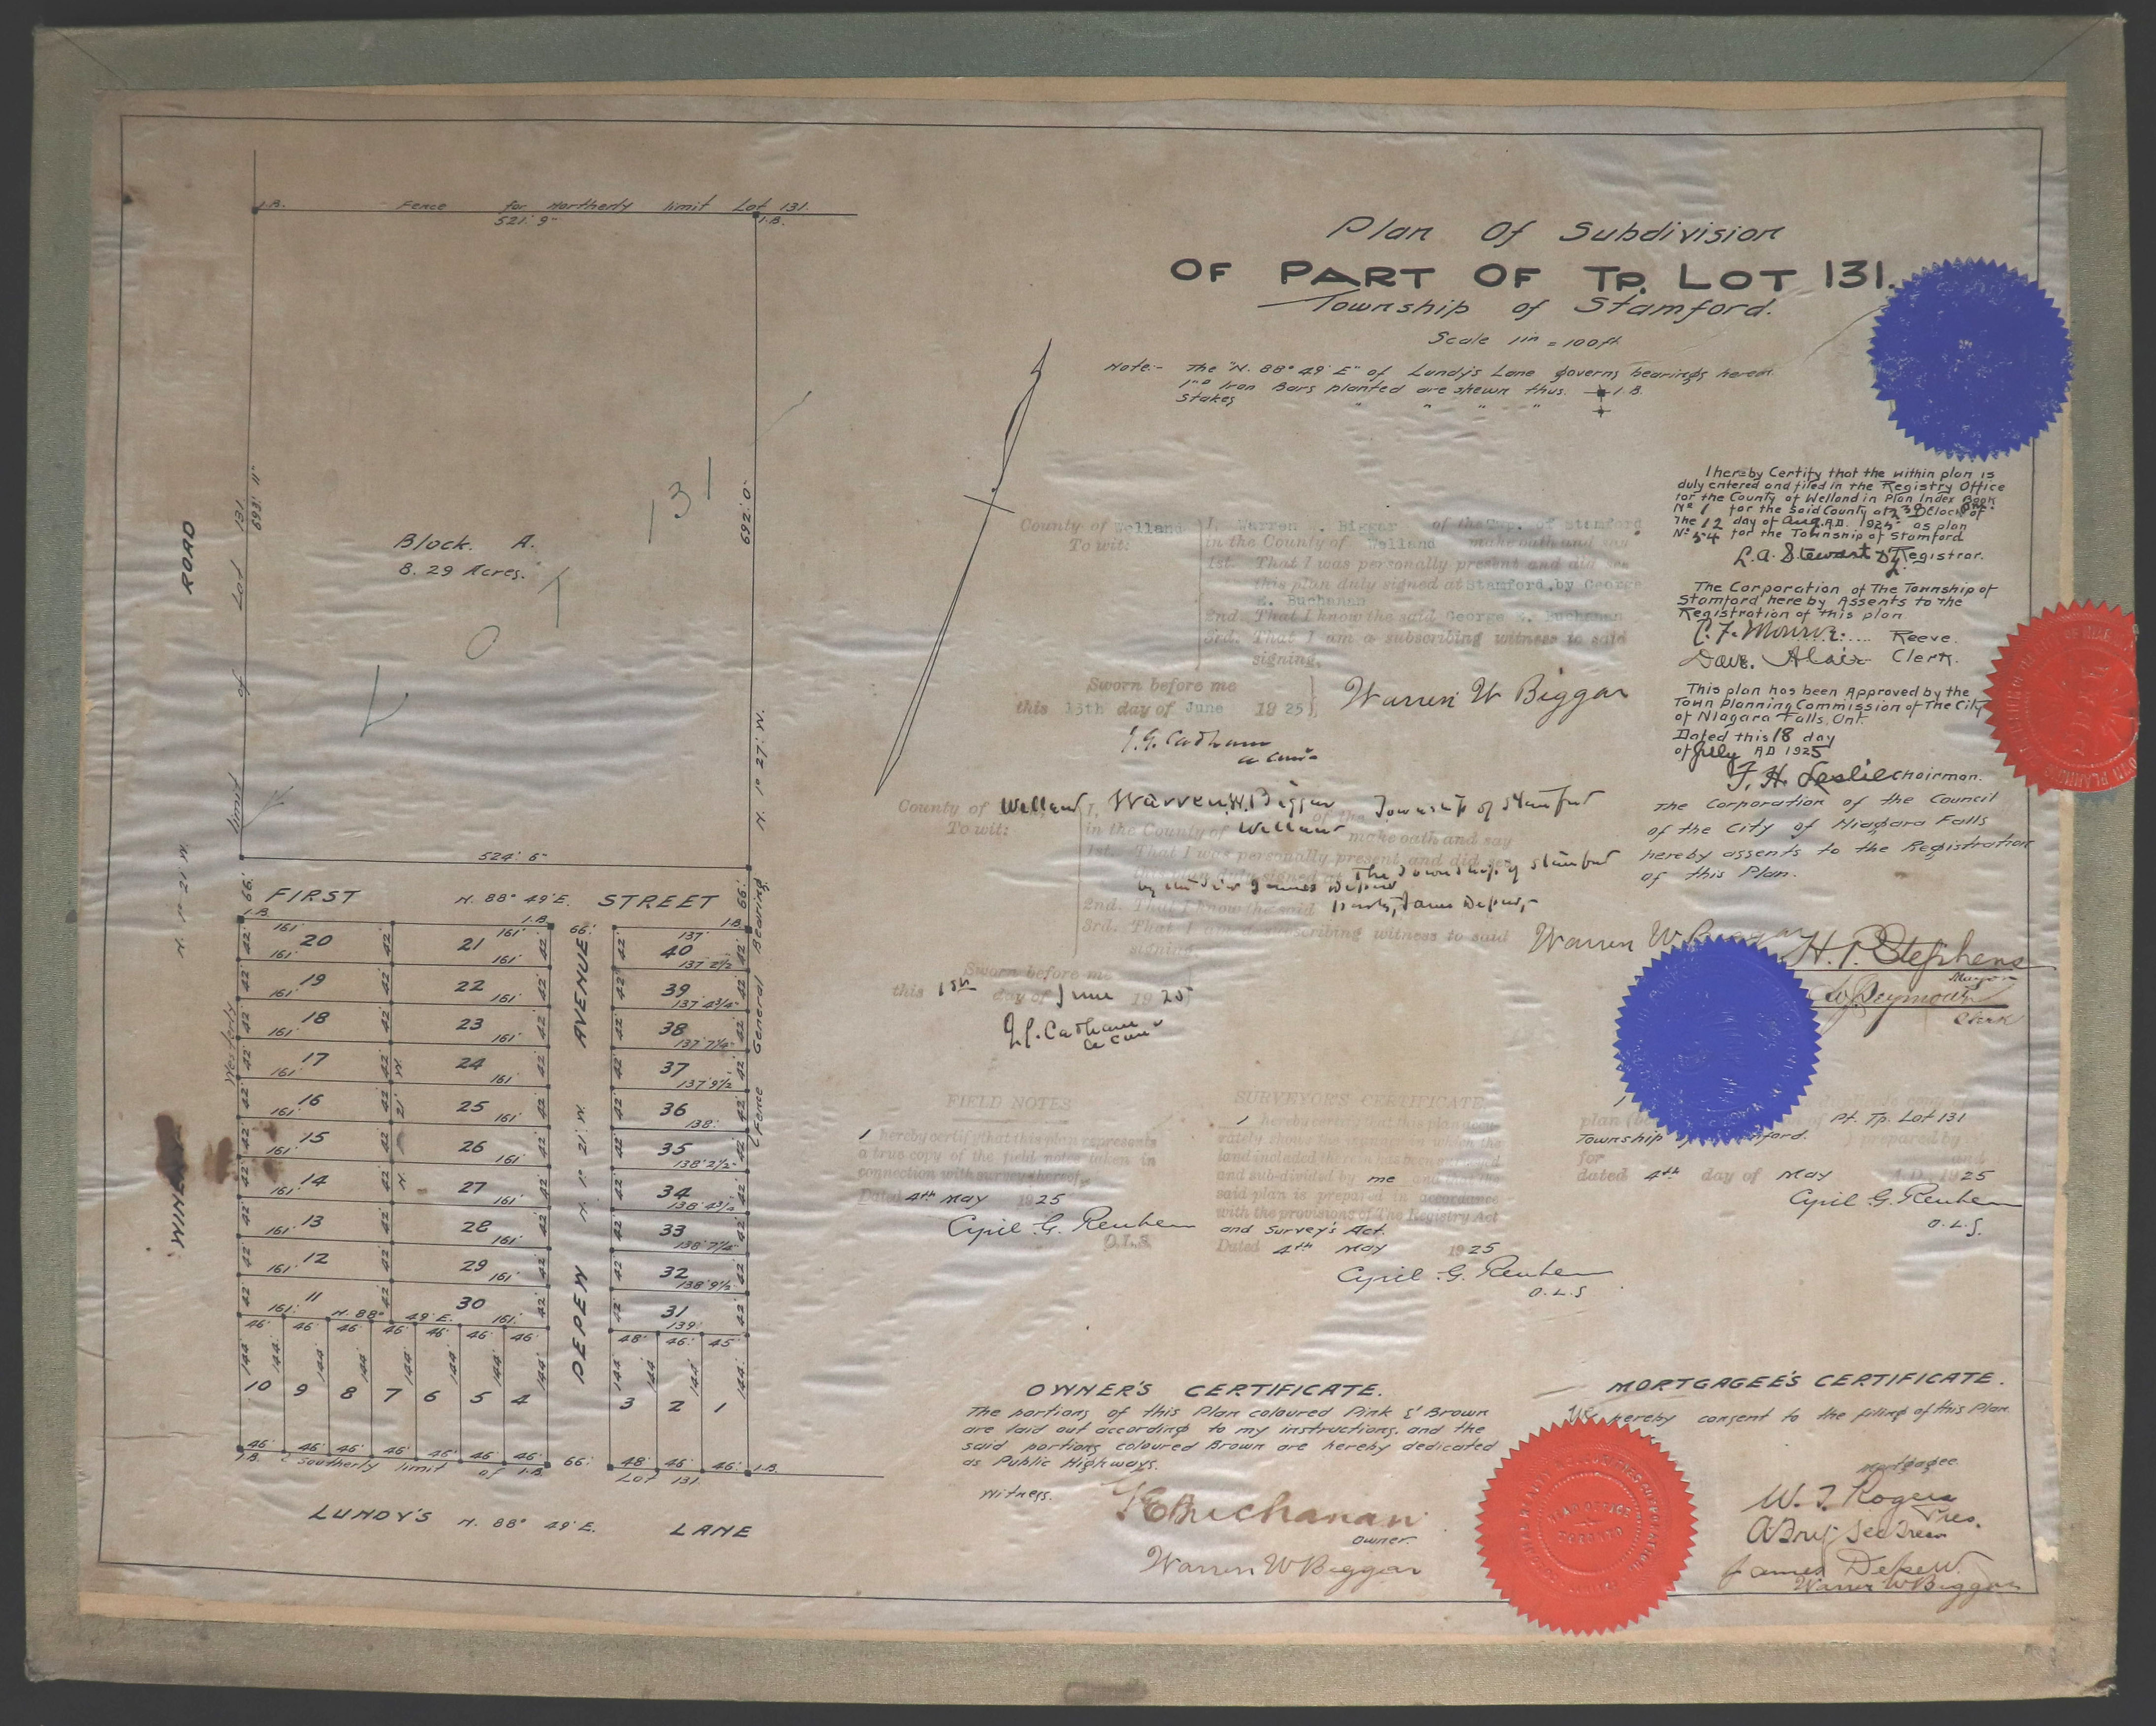 Plan Of Subdivision
OF PART OF TP. LOT 131.
Township of Stamford.
Scale 1in = 100ft
Note:- The "N. 88° 49' E" of Lundy's Lane governs bearings herein.
1"□ Iron Bars planted are shewn thus. I.B.
Stakes " " " "
I.B. Fence for Northerly limit Lot 131.
521' 9" I.B.
693' 11"
692' 0"
Block. A.
8.29 Acres.
131
L O T
ROAD
limit of Lot 131
N. 1° 21' W.
N. 1° 27' W.
524' 6"
66' FIRST N. 88° 49' E. STREET 66'
I.B. I.B. 66' I.B.
161' 161' 137'
20 21 40
161' 161' 137' 2½"
19 22 39
161' 161' 137' 4¾"
18 23 38
161' 161' 137' 7¼"
17 24 37
161' 161' 137' 9½"
16 25 36
161' 161' 138'
15 26 35
161' 161' 138' 2½"
14 27 34
161' 161' 138' 4¾"
13 28 33
161' 161' 138' 7¼"
12 29 32
161' 161' 138' 9½"
11 30 31
161' N. 88° 49' E. 161' 139'
46' 46' 46' 46' 46' 46' 46' 48' 46' 45'
144' 144' 144' 144' 144' 144' 144' 144' 144' 144' 144'
10 9 8 7 6 5 4 3 2 1
46' 46' 46' 46' 46' 46' 46' 66' 48' 46' 46' I.B.
I.B. Southerly limit of I.B. Lot 131
Westerly
N. 21' W.
DEPEW N. 1° 21' W. AVENUE
Fence General Bearing
LUNDY'S N. 88° 49' E. LANE
County of Welland I, Warren W. Biggar of the Twp. of Stamford
To wit: in the County of Welland make oath and say
1st. That I was personally present and did see
this plan duly signed at Stamford, by George
E. Buchanan
2nd. That I know the said George E. Buchanan
3rd. That I am a subscribing witness to said
signing.
Sworn before me
this 13th day of June 1925
Warren W Biggar
J.G. Cadham
a Com'r
County of Welland I, Warren W. Biggar of the Township of Stamford
To wit: in the County of Welland make oath and say
1st. That I was personally present and did see
this plan duly signed at The Township of Stamford
2nd. That I know the said James Depew
3rd. That I am a subscribing witness to said
signing.
Warren W Biggar
Sworn before me
this day of June 1925
J.G. Cadham
a Com'r
I hereby Certify that the within plan is
duly entered and filed in the Registry Office
for the County of Welland in Plan Index Book
No 1 for the said County at 2.30 O'Clock of
The 12 day of Aug. A.D. 1925 as plan
No 54 for the Township of Stamford
L.A. Stewart Dy. Registrar.
The Corporation of The Township of
Stamford here by Assents to the
Registration of this plan
Reeve.
Clerk.
This plan has been Approved by the
Town Planning Commission of The City
of Niagara Falls, Ont.
Dated this 18 day
of July AD 1925
F. H. Leslie Chairman.
The Corporation of the Council
of the City of Niagara Falls
hereby assents to the Registration
of this Plan.
H. P. Stephens
Mayor
Clerk
FIELD NOTES
I hereby certify that this plan represents
a true copy of the field notes taken in
connection with survey thereof.
Dated 4th May 1925
Cyril G. Reuben
O.L.S.
SURVEYOR'S CERTIFICATE
I hereby certify that this plan accu-
rately shows
land included therein has been surveyed
and sub-divided by me and that the
said plan is prepared in accordance
with the provisions of The Registry Act
and Survey's Act.
Dated 4th May 1925
Cyril G. Reuben
O.L.S
plan Pt. Tp. Lot 131
Township prepared by
for and
dated 4th day of May A.D. 1925
Cyril G. Reuben
O.L.S.
OWNER'S CERTIFICATE.
The portions of this Plan coloured Pink & Brown
are laid out according to my instructions, and the
said portions coloured Brown are hereby dedicated
as Public Highways.
Witness. Buchanan
Owner.
Warren W Biggar
MORTGAGEE'S CERTIFICATE.
We hereby consent to the filing of this Plan.
Mortgagee
W. J. Rogers
Pres.
Sec Treas
James Depew.
Warren W Biggar
HEAD OFFICE
TORONTO